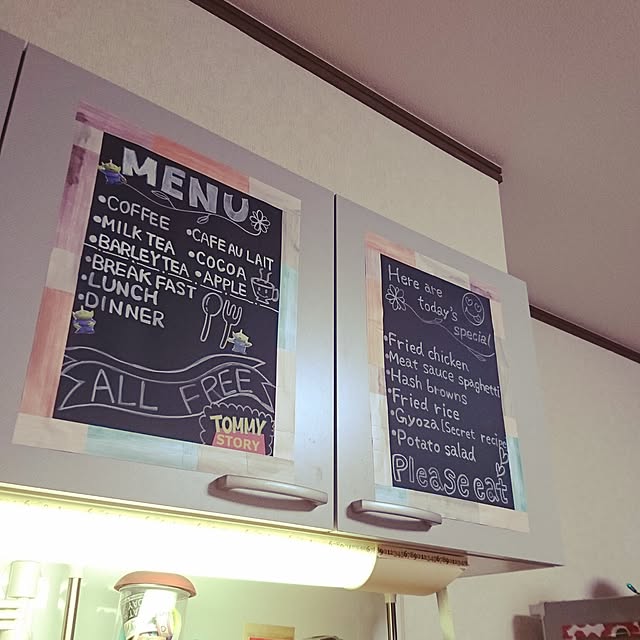 MENU
•COFFEE
•MILK TEA
•BARLEY TEA
•BREAKFAST
•LUNCH
•DINNER
•CAFE AU LAIT
•COCOA
•APPLE
ALL FREE
TOMMY
STORY
Here are
today's
special
•Fried chicken
•Meat sauce spaghetti
•Hash browns
•Fried rice
•Gyoza [Secret recipe
•Potato salad
Please eat